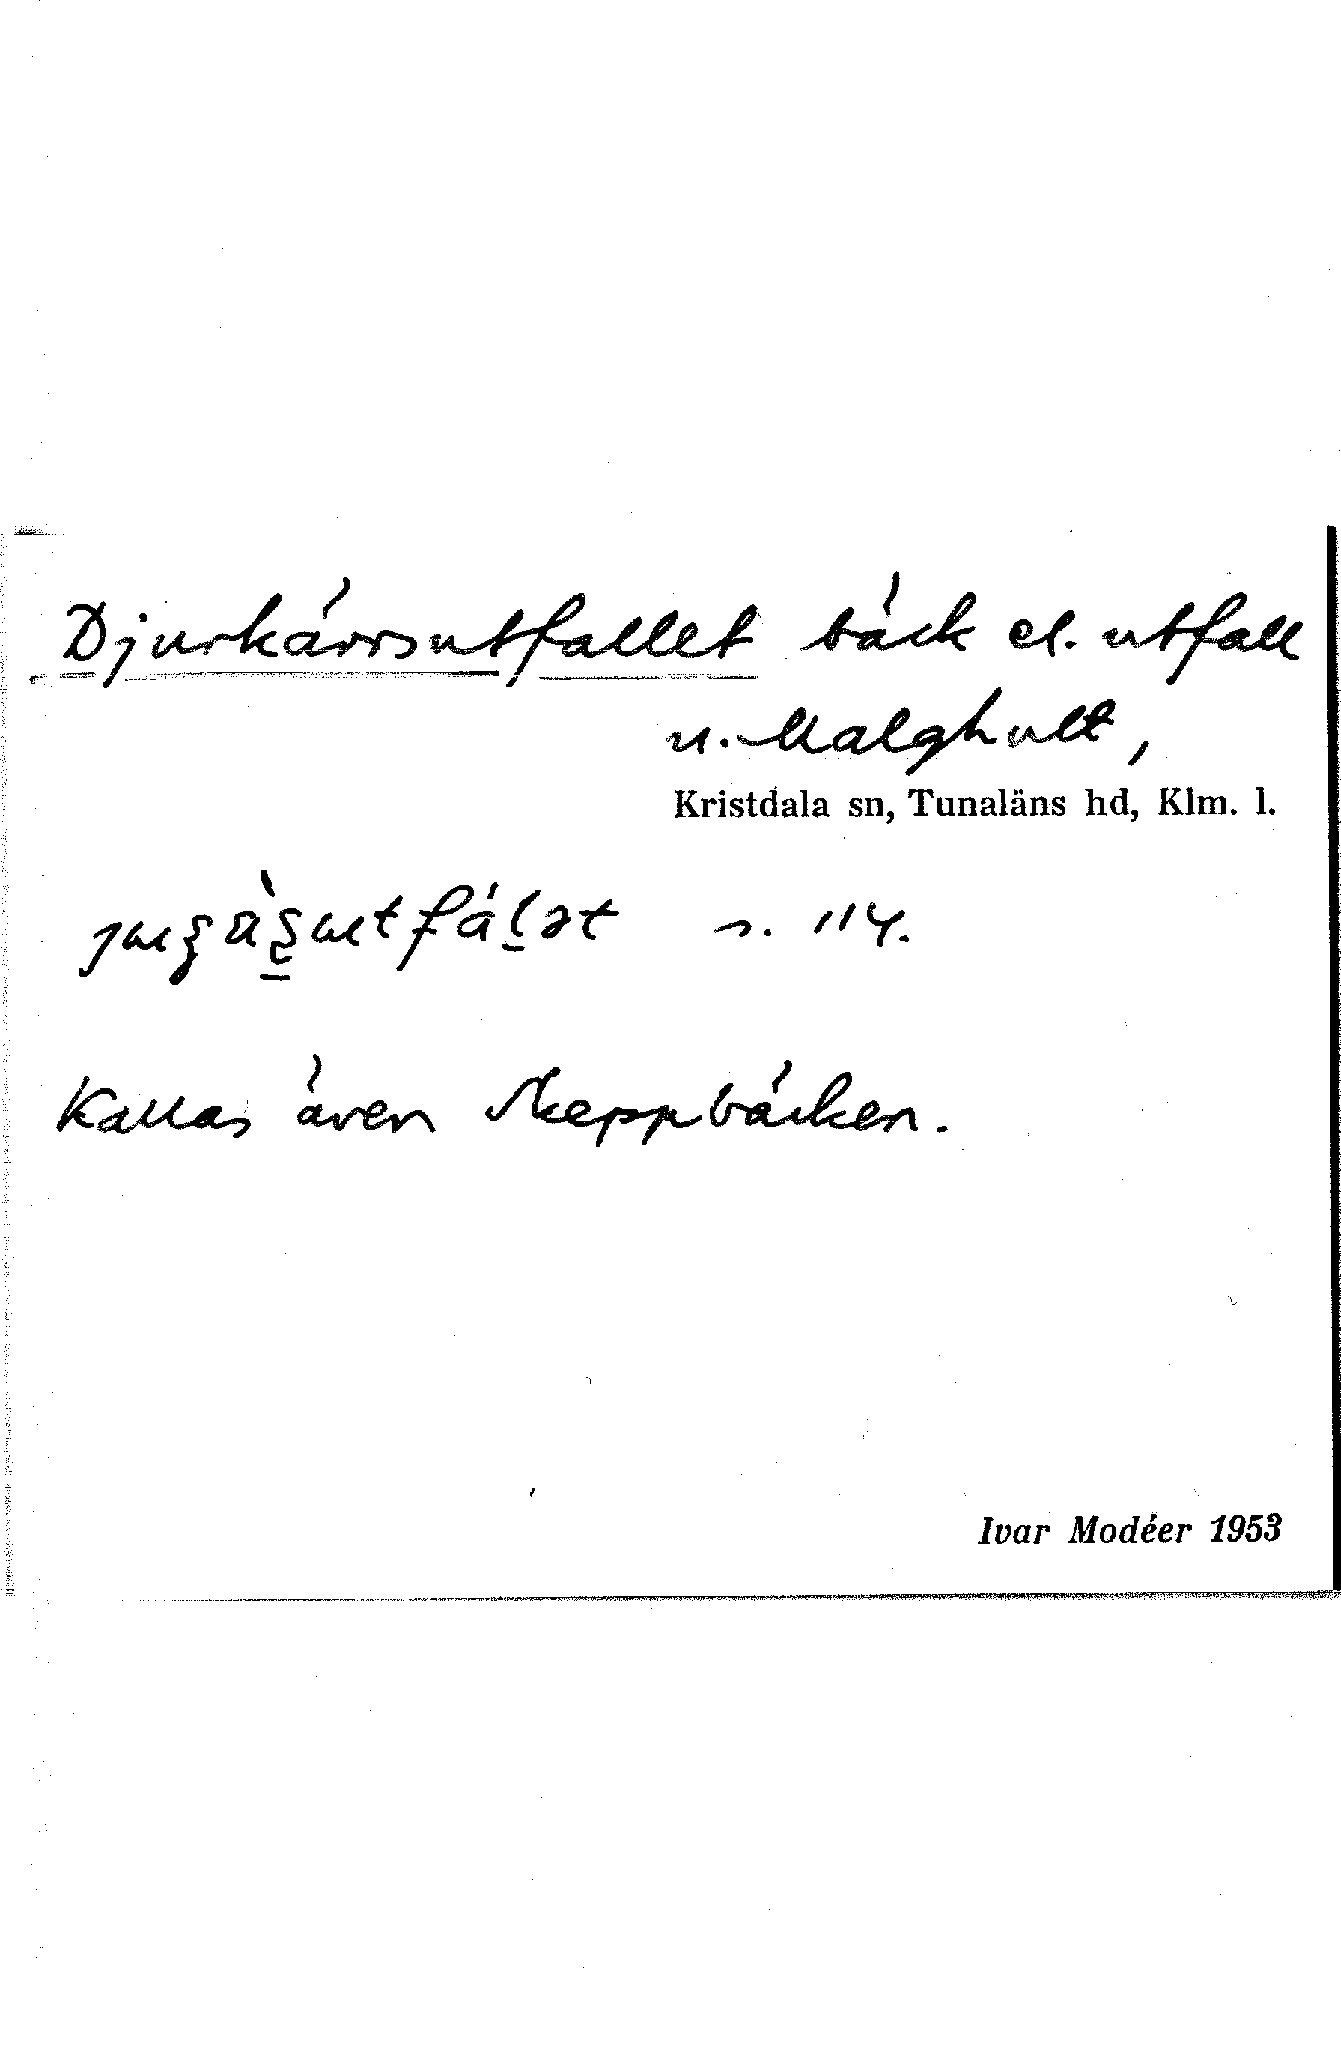 Djurkärrsutfallet bäck el. utfall
u. Malghult,
Kristdala sn, Tunaläns hd, Klm. l.
s. 114.
Kallas även Skeppbäcken.
Ivar Modéer 1953